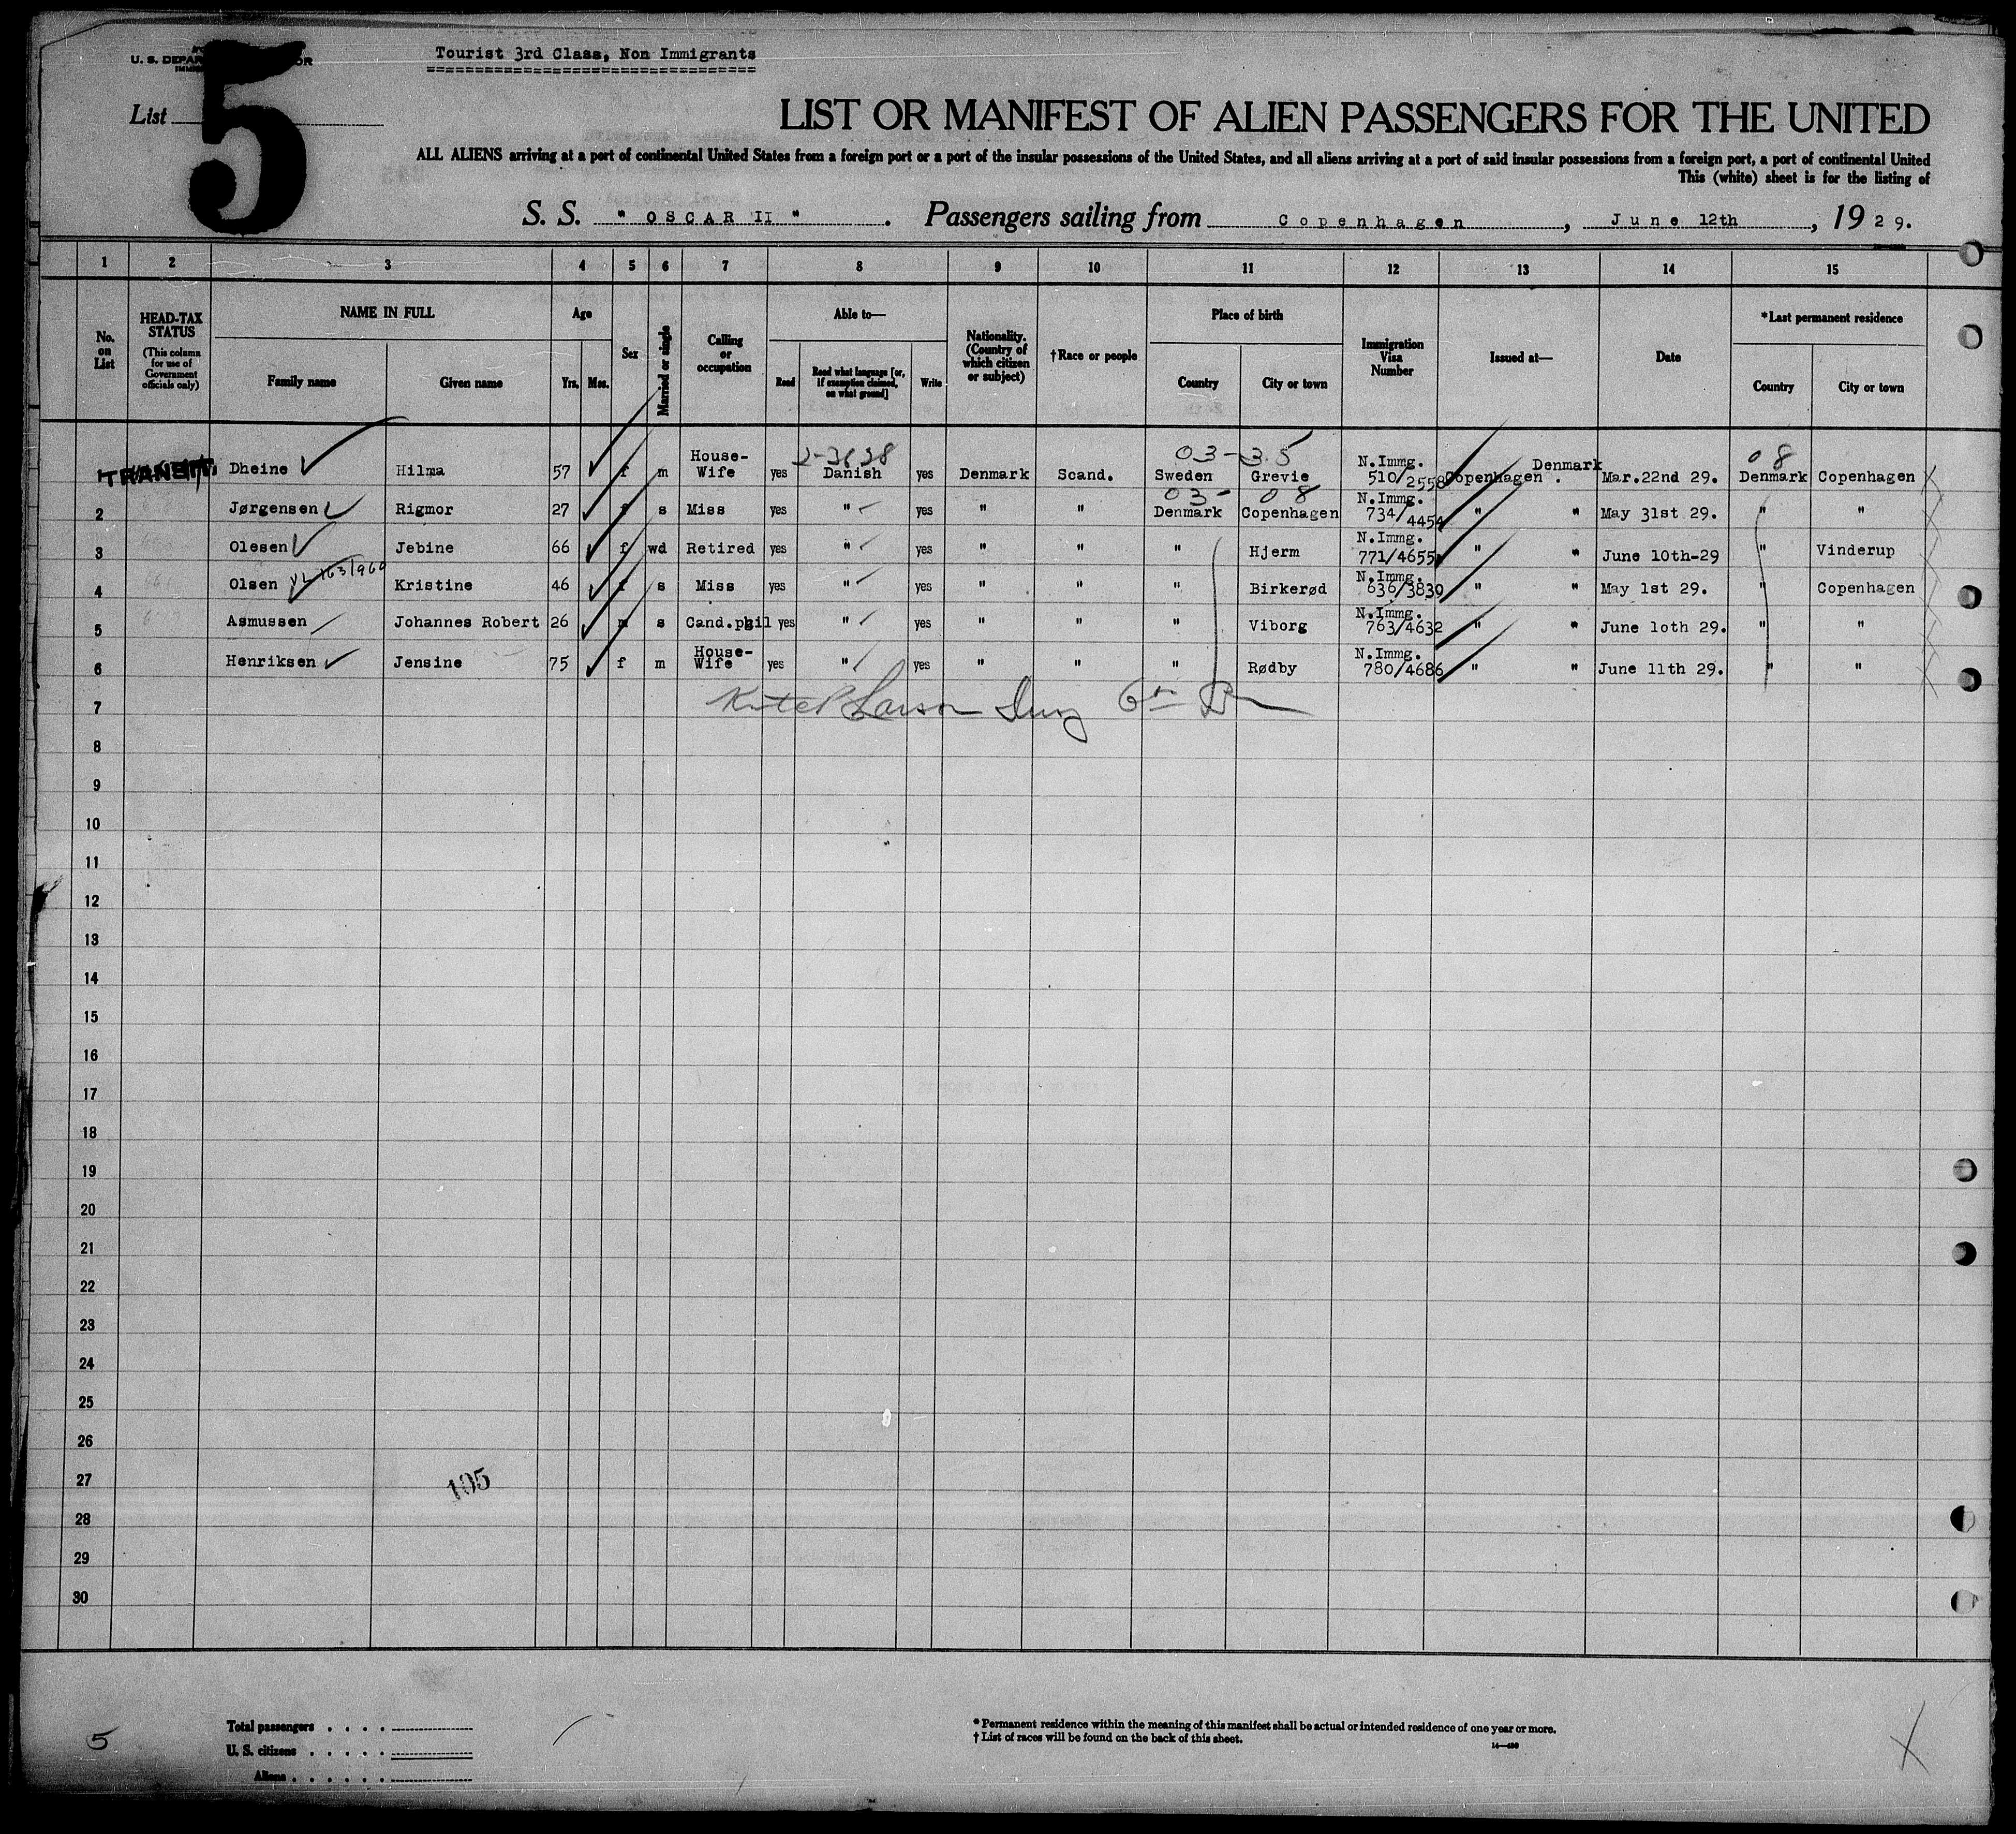 Tourist 3rd Class, Non Immigrants
U. S. DEPAR
List 5
LIST OR MANIFEST OF ALIEN PASSENGERS FOR THE UNITED
ALL ALIENS arriving at a port of continental United States from a foreign port or a port of the insular possessions of the United States, and all aliens arriving at a port of said insular possessions from a foreign port, a port of continental United
This (white) sheet is for the listing of
S. S. " OSCAR II " . Passengers sailing from Copenhagen , June 12th , 1929.
1 2 3 4 5 6 7 8 9 10 11 12 13 14 15
No. on List
HEAD-TAX STATUS (This column for use of Government officials only)
NAME IN FULL
Family name Given name
Age
Yrs. Mos.
Sex
Married or single
Calling or occupation
Able to—
Read Read what language [or, if exemption claimed, on what ground] Write
Nationality. (Country of which citizen or subject)
†Race or people
Place of birth
Country City or town
Immigration Visa Number
Issued at—
Date
*Last permanent residence
Country City or town
2-3638 03-35 08
TRANSIT Dheine Hilma 57 f m House-Wife yes Danish yes Denmark Scand. Sweden Grevie N.Immg. 510/2558 Copenhagen. Denmark Mar.22nd 29. Denmark Copenhagen
03- 08
2 Jørgensen Rigmor 27 f s Miss yes " yes " " Denmark Copenhagen N.Immg. 734/4454 " " May 31st 29. " "
3 Olesen Jebine 66 f wd Retired yes " yes " " " Hjerm N.Immg. 771/4655 " " June 10th-29 " Vinderup
4 Olsen Kristine 46 f s Miss yes " yes " " " Birkerød N.Immg. 636/3839 " " May 1st 29. " Copenhagen
5 Asmussen Johannes Robert 26 m s Cand.phil yes " yes " " " Viborg N.Immg. 763/4632 " " June 10th 29. " "
6 Henriksen Jensine 75 f m House-Wife yes " yes " " " Rødby N.Immg. 780/4686 " " June 11th 29. " "
7
8
9
10
11
12
13
14
15
16
17
18
19
20
21
22
23
24
25
26
27
105
28
29
30
5
Total passengers . . . .
U. S. citizens . . . . .
Aliens . . . . . .
* Permanent residence within the meaning of this manifest shall be actual or intended residence of one year or more.
† List of races will be found on the back of this sheet.